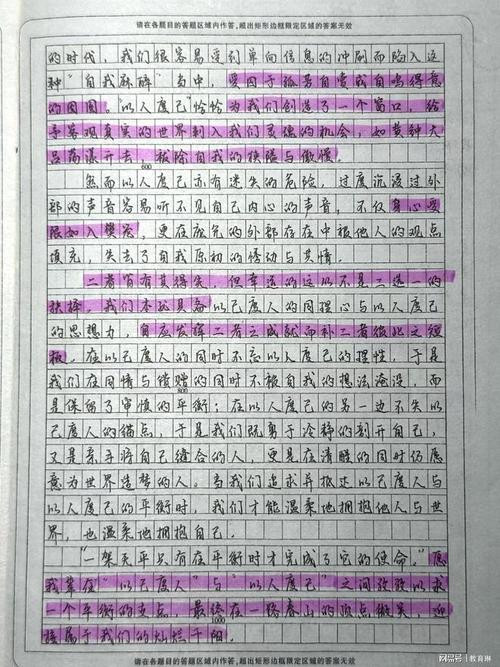 请在各题目的答题区域内作答,超出矩形边框限定区域的答案无效
的时代,我们很容易受到单向信息的冲刷而陷入这
种“自我麻醉”当中,受困于孤芳自赏或自鸣得意
的囹圄。“以人度己”恰恰为我们创造了一个窗口,给
予客观真实的世界刺入我们灵魂的机会,如黄钟大
吕荡漾开去,祓除自我的狭隘与傲慢。
600
然而以人度己亦有迷失的危险,过度沉浸过外
部的声音容易听不见自己内心的声音,不仅身心受
限如入樊笼,更在庞杂的外部存在中被他人的观点
填充,失去了自我原初的悸动与共情。
二者皆有其得失,但幸运的这从不是二选一的
抉择。我们本就具备以己度人的同理心与以人度己
的思想力,自应发挥二者之成就而补二者彼此之短
板。在以己度人的同时不忘以人度己的理性,于是
我们在同情与馈赠的同时不被自我的想法淹没,而
800
是保留了审慎的平衡;在以人度己的另一边不失以
己度人的锚点,于是我们既勇于冷静的剖开自己,
又是亲手将自己缝合的人,更是在清醒的同时仍愿
意为世界造梦的人。当我们追求并抵达以己度人与
以人度己的平衡时,我们才能温柔地拥抱他人与世
界,也温柔地拥抱自己。
“一架天平只有在平衡时才完成了它的使命。”愿
我辈在“以己度人”与“以人度己”之间孜孜以求
一个平衡的支点,最终在一路春山的顶点微笑,迎
1000
接属于我们的灿烂千阳。
请在各题目的答题区域内作答,超出矩形边框限定区域的答案无效
搜狐号@教育琳